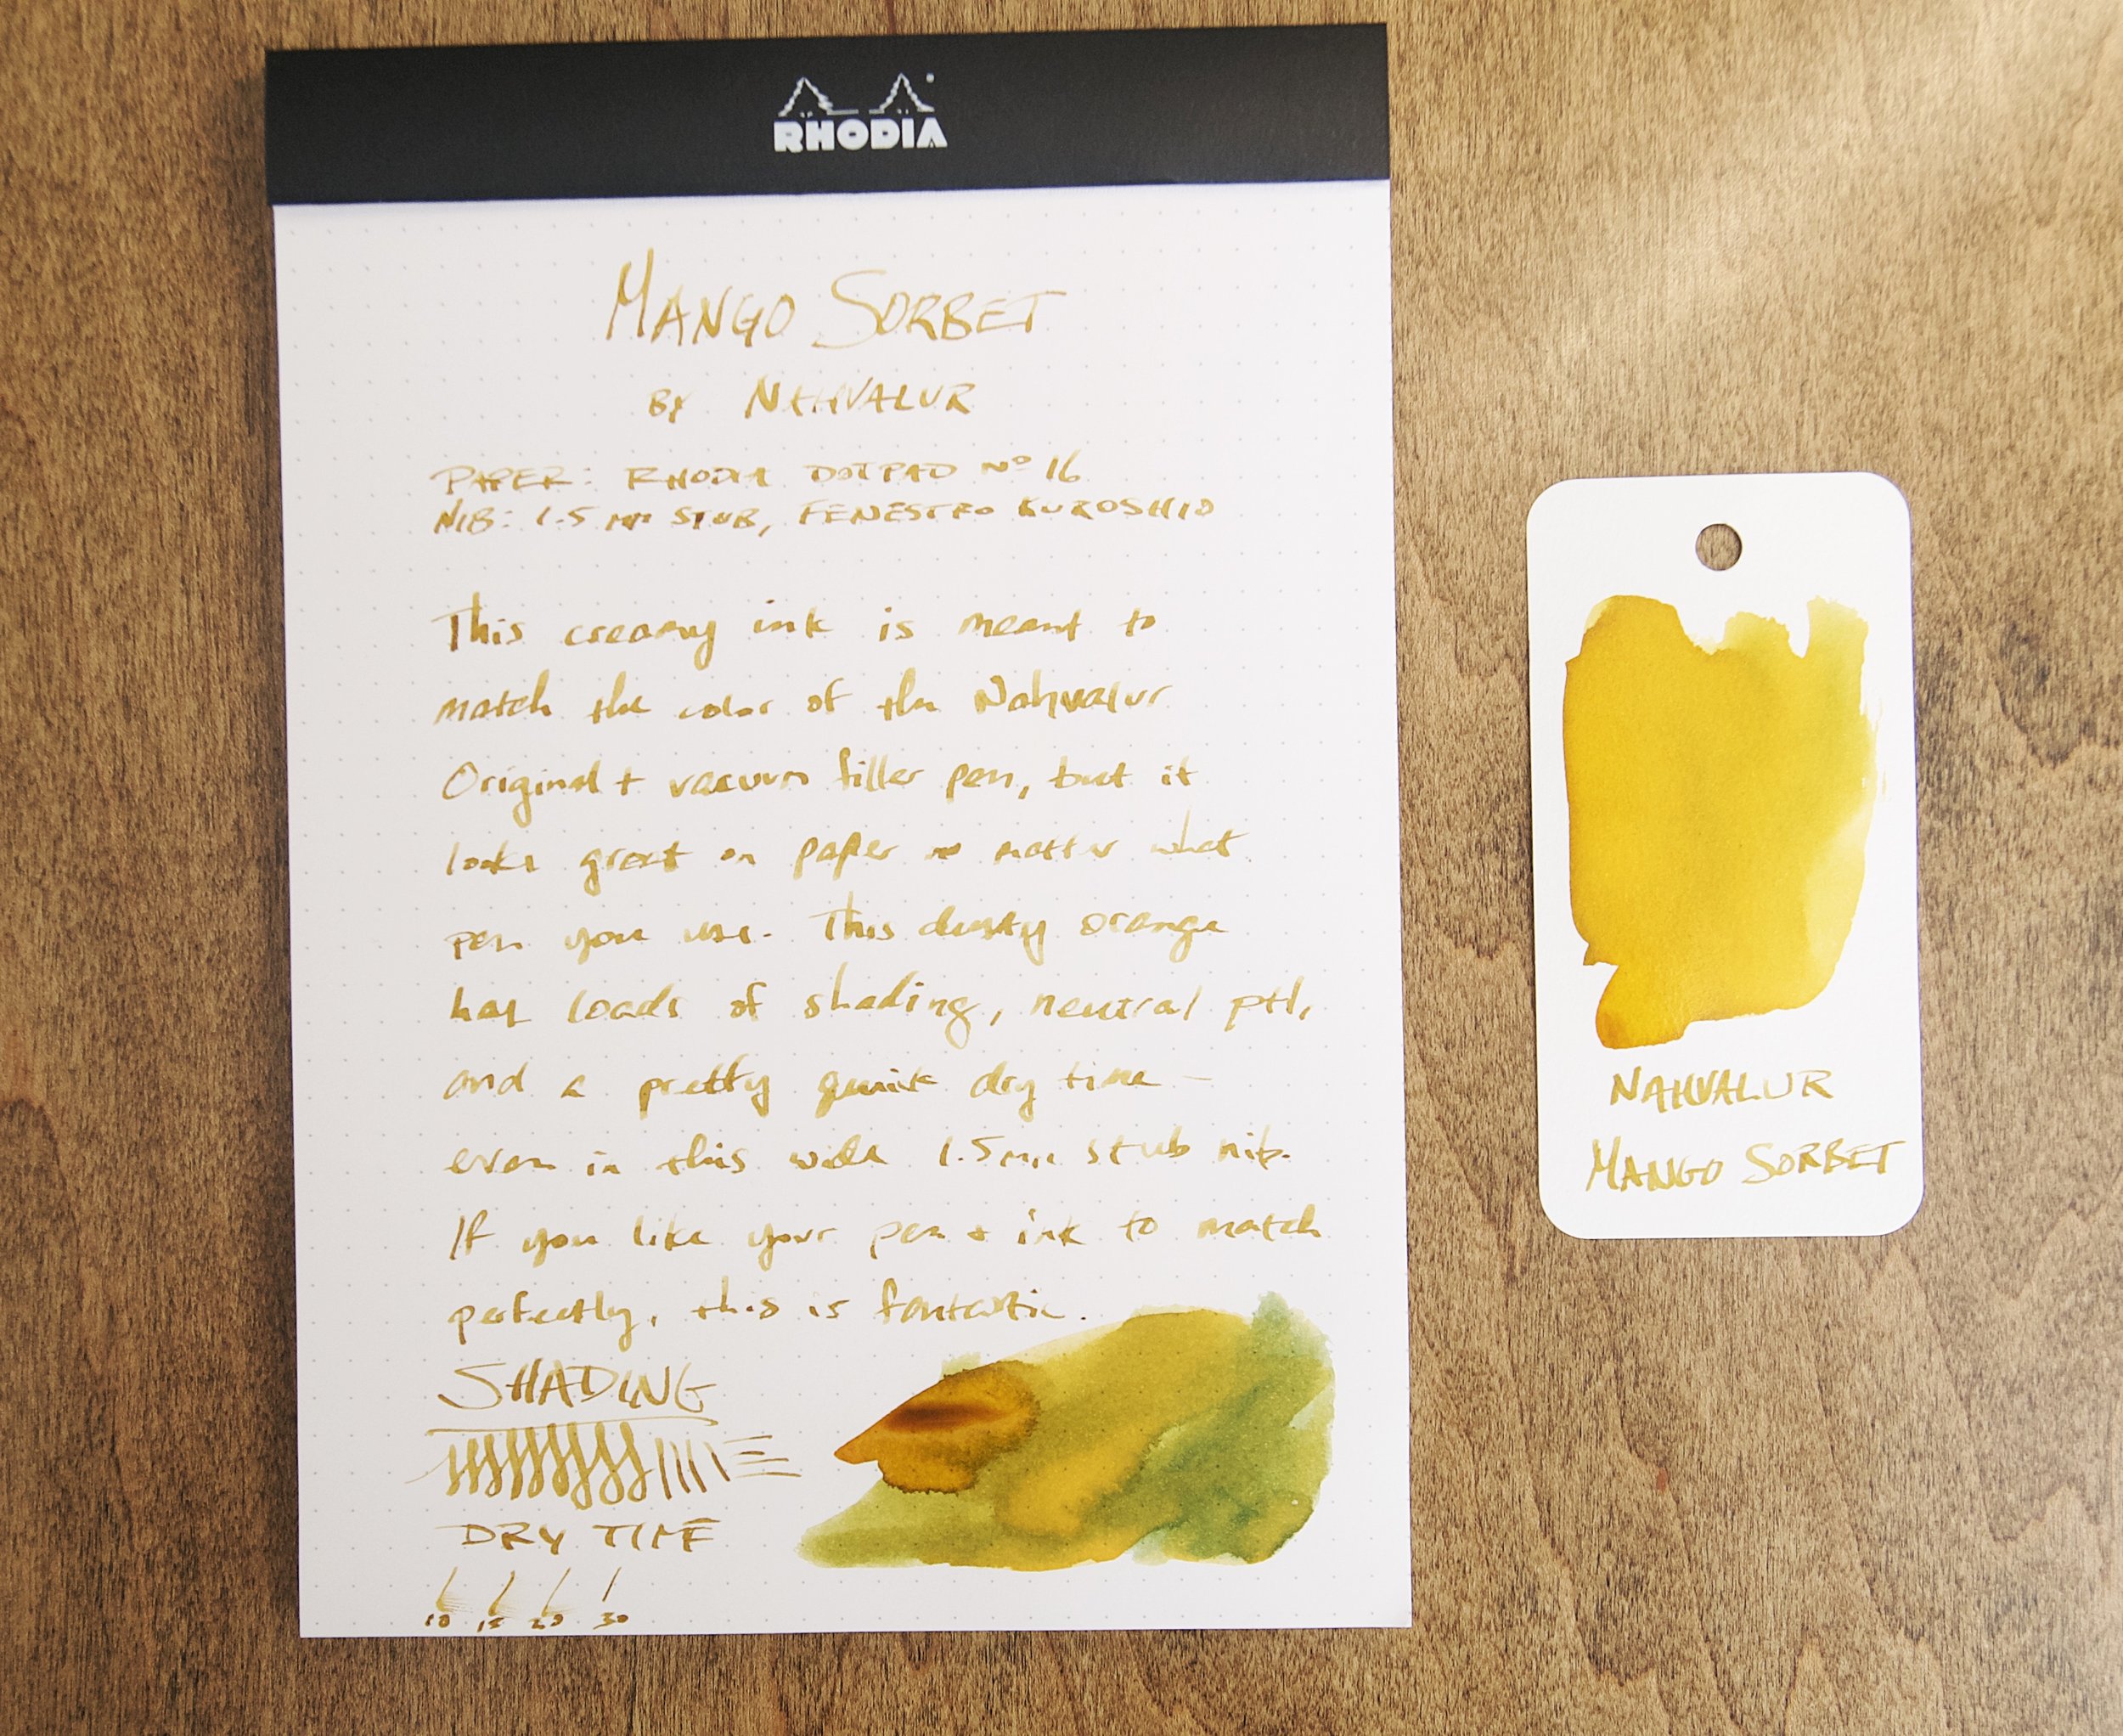 RHODIA
MANGO SORBET
BY NAHVALUR
PAPER: RHODIA DOTPAD Nº 16
NIB: 1.5 mm STUB, FENESTRO KUROSHIO
This creamy ink is meant to
match the color of the Nahvalur
Original + vacuum filler pen, but it
looks great on paper no matter what
pen you use. This dusty orange
has loads of shading, neutral pH,
and a pretty quick dry time –
even in this wide 1.5mm stub nib.
If you like your pen + ink to match
perfectly, this is fantastic.
SHADING
DRY TIME
10 15 20 30
NAHVALUR
MANGO SORBET